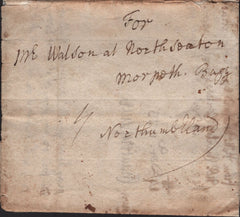 For
Mr Walson at Northseaton
Morpeth. Bagg
Northumbland